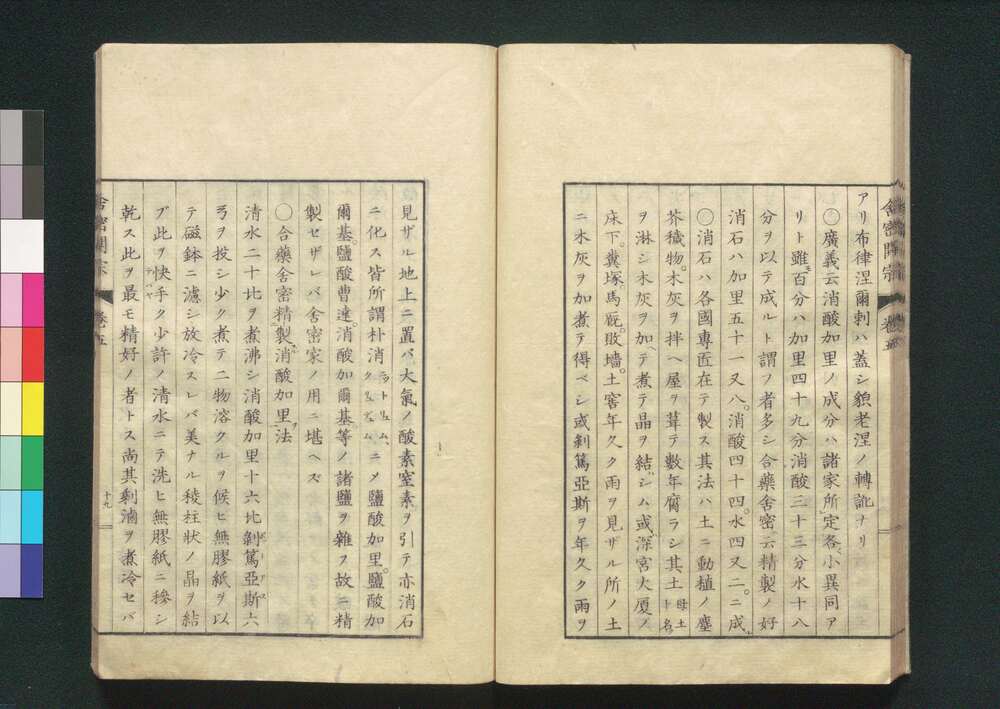 舎密開宗 卷五
アリ布律涅爾剌ハ蓋シ貌老涅ノ轉訛ナリ
〇廣義云消酸加里ノ成分ハ諸家所定各小異同ア
リト雖百分ハ加里四十九分消酸三十三分水十八
分ヲ以テ成ルト謂フ者多シ合藥舎密云精製ノ好
消石ハ加里五十一又八。消酸四十四。水四又二。ニ成
〇消石ハ各國專匠在テ製ス其法ハ土ニ動植ノ塵
芥穢物。木灰ヲ拌ヘ屋ヲ葺テ數年腐ラシ其土母土ト名
ヲ淋シ木灰ヲ加テ煮テ晶ヲ結シム或深宮大厦ノ
床下。糞塚。馬厩。敗墻。土窖年久ク雨ヲ見ザル所ノ土
ニ木灰ヲ加煮テ得ベシ或剥篤亞斯ヲ年久ク雨ヲ
見ザル地上ニ置バ大氣ノ酸素窒素ヲ引テ亦消石
ニ化ス皆所謂朴消ニメ鹽酸加里。鹽酸加
爾基。鹽酸曹達。消酸加爾基等ノ諸鹽ヲ雜フ故ニ精
製セザレバ舎密家ノ用ニ堪ヘズ
〇合藥舎密精製消酸加里法
清水二十比ヲ煮沸シ消酸加里十六比剥篤亞斯六
弓ヲ投シ少ク煮テ二物溶クルヲ候ヒ無膠紙ヲ以
テ磁鉢ニ濾シ放冷スレバ美ナル稜柱状ノ晶ヲ結
ブ此ヲ快手ク少許ノ清水ニテ洗ヒ無膠紙ニ糝シ
乾ス此ヲ最モ精好ノ者トス尚其剰滷ヲ煮冷セバ
舎密開宗 卷五 十九